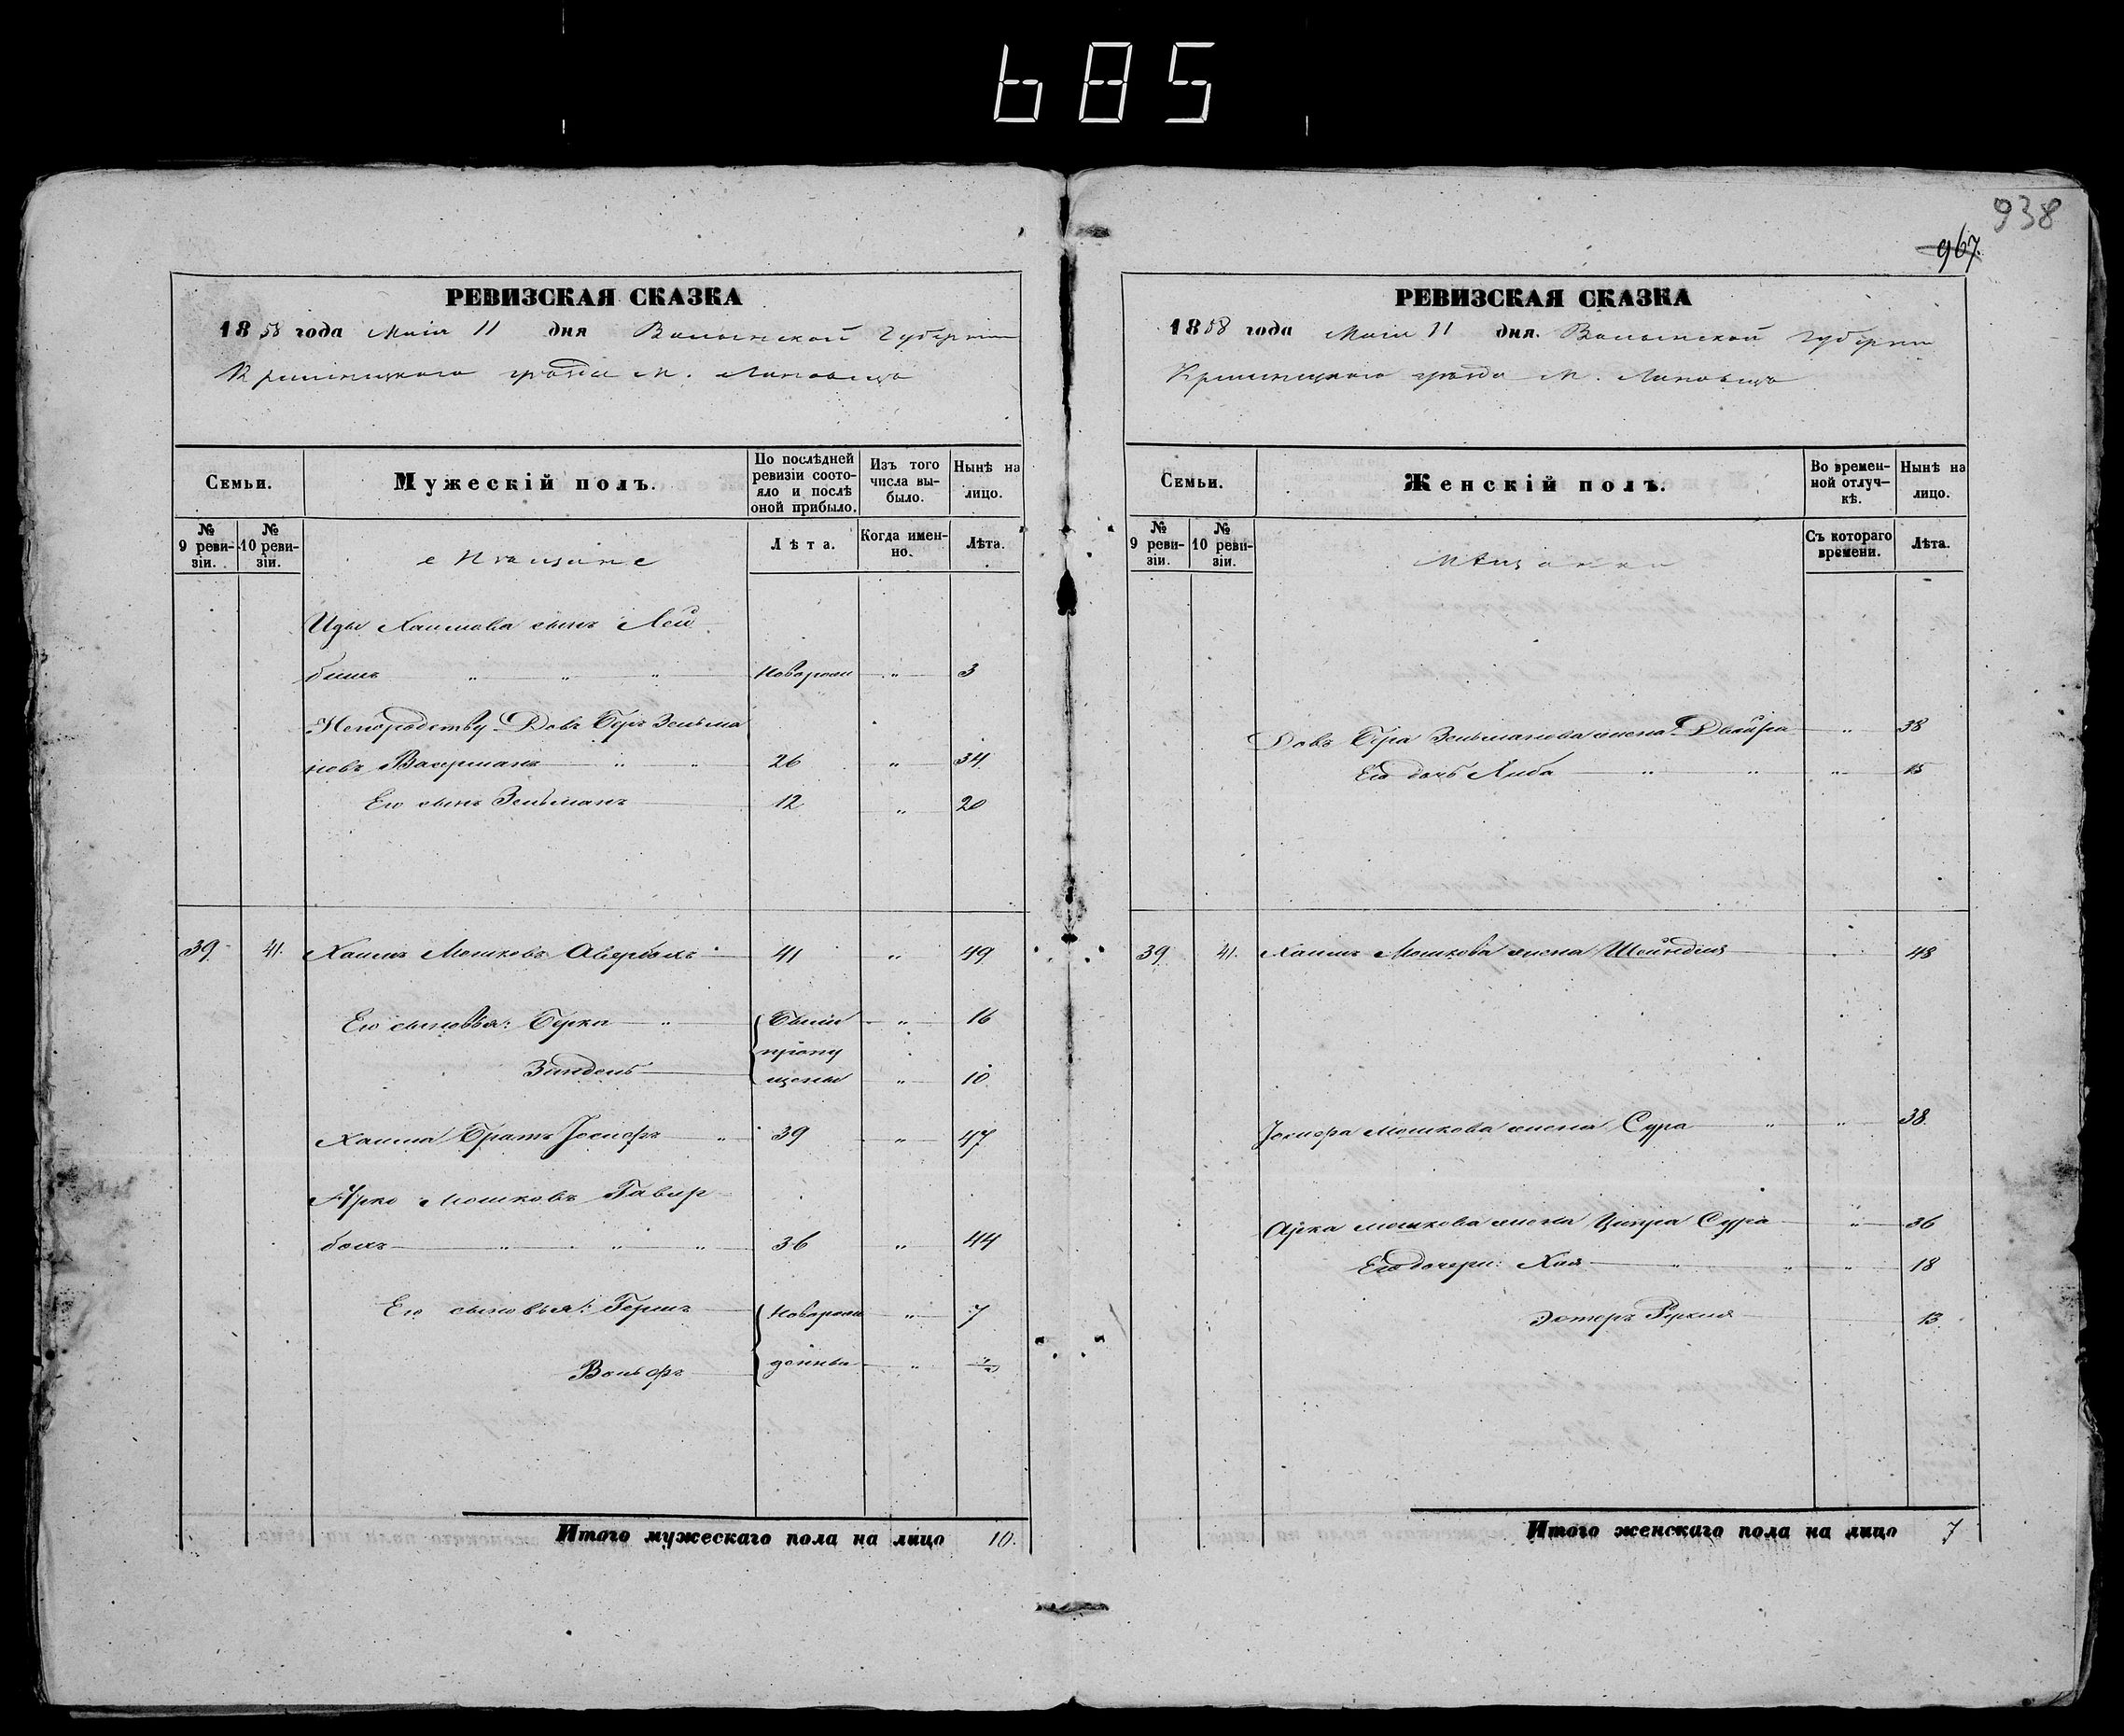 685
938
967.
РЕВИЗСКАЯ СКАЗКА
1858 года Маія 11 дня Волынской Губерніи
Кременецкого уѣзда м. Лановецъ
Семьи.
Мужескій полъ.
По послѣдней ревизіи состояло и послѣ оной прибыло.
Изъ того числа выбыло.
Нынѣ на лицо.
№ 9 ревизіи.
№ 10 ревизіи.
Мѣщане
Лѣта.
Когда именно.
Лѣта.
Иды Хаимова сынъ Лей
бишъ " " " новорож " 3
Непородству Довъ Беръ Зельма
новъ Васерманъ " " 26 " 34
Его сынъ Зельманъ 12 " 20
39 41. Хаимъ Мошковъ Авербахъ 41 " 49
Его сыновья: Берко " Были " 16
пропу
Зиндель щены " 10
Хаима Братъ Іосифъ " 39 " 47
Арко Мошковъ Гавир
бохъ " " " 36 " 44
Его сыновья: Гершъ новорож " 7
Вольфъ денны "
Итого мужескаго пола на лицо 10.
РЕВИЗСКАЯ СКАЗКА
1858 года Маія 11 дня. Волынской Губерніи
Кременецкого уѣзда м. Лановецъ
Семьи.
Женскій полъ.
Во временной отлучкѣ.
Нынѣ на лицо.
№ 9 ревизіи.
№ 10 ревизіи.
Мѣщанки
Съ котораго времени.
Лѣта.
Довъ Бера Зельманова жена Двойра " 38
Его дочь Либа " " " 15
39 41. Хаимъ Мошкова жена Шейндля 48
Іосифа Мошкова жена Сура " " 38.
Арка Мошкова жена Ципра Сура " 36
Его дочери: Хая " " " 18
Эстеръ Рухля 13
Итого женскаго пола на лицо 7